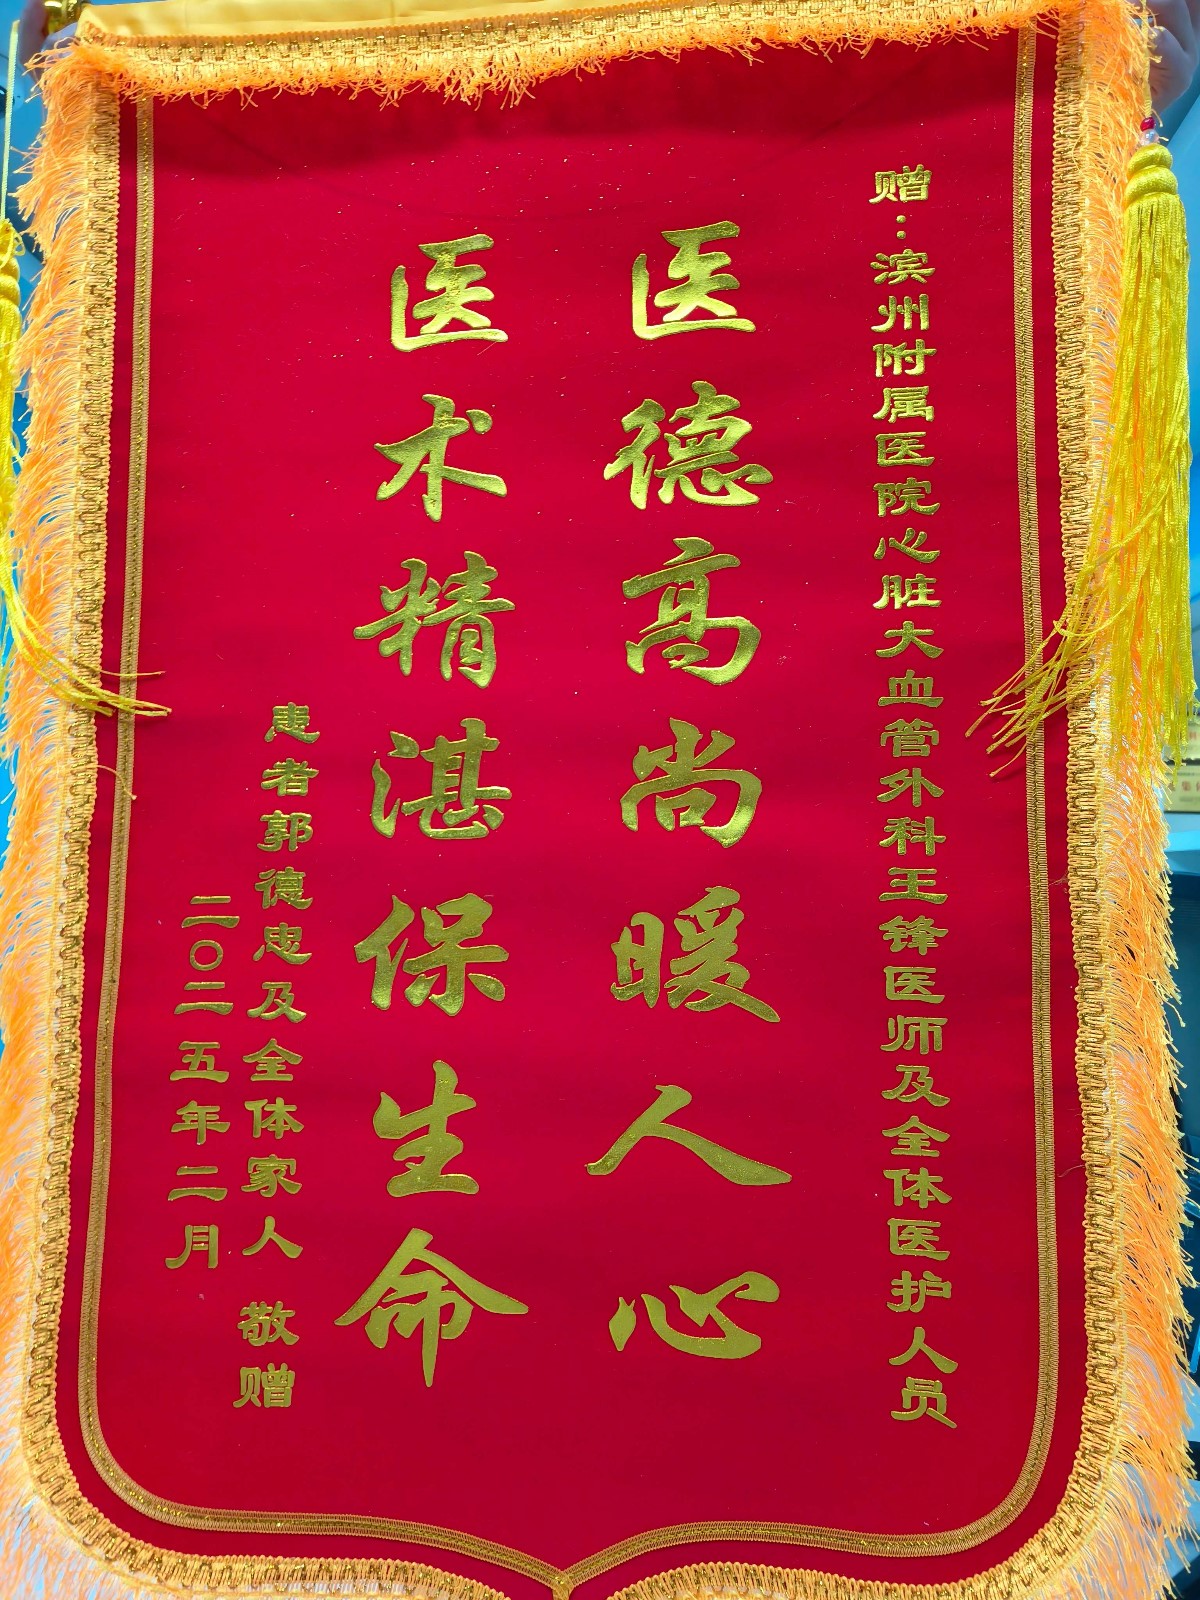 赠：滨州附属医院心脏大血管外科王锋医师及全体医护人员
医德高尚暖人心
医术精湛保生命
患者郭德忠及全体家人 敬赠
二〇二五年二月